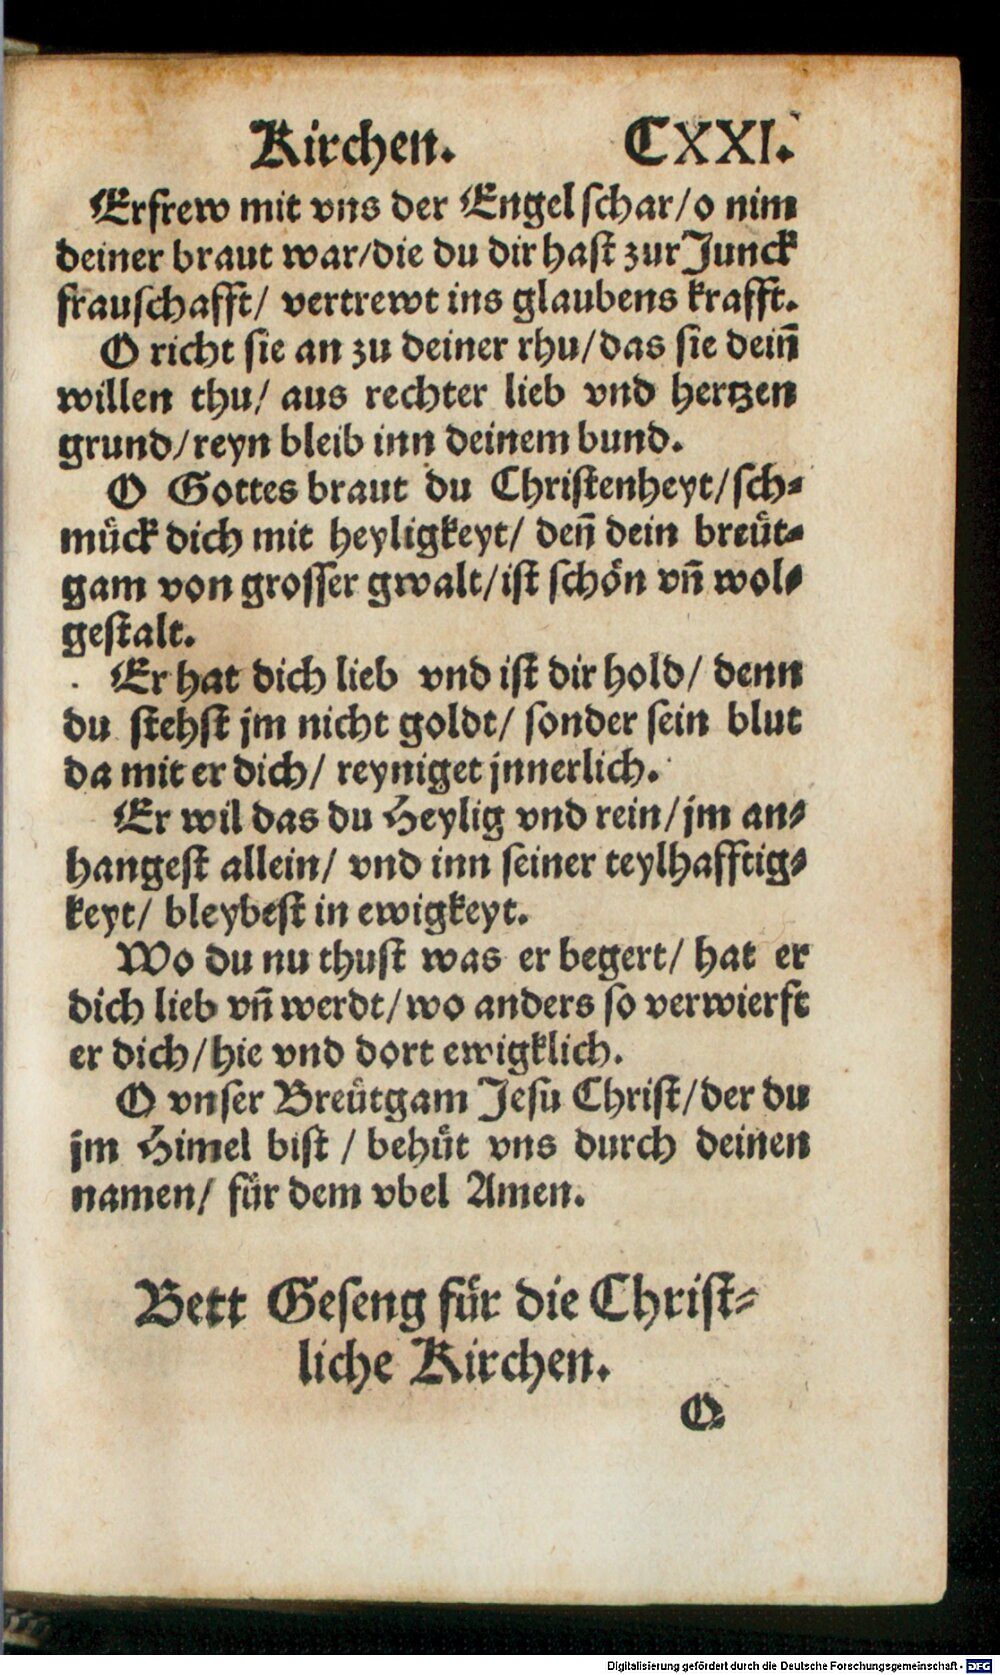 Kirchen. CXXI.
Erfrew mit vns der Engel schar/o nim
deiner braut war/die du dir hast zur Junck
frauschafft/ vertrewt ins glaubens krafft.
O richt sie an zu deiner rhu/das sie dein̄
willen thu/ aus rechter lieb vnd hertzen
grund/reyn bleib inn deinem bund.
O Gottes braut du Christenheyt/sch-
muͤck dich mit heyligkeyt/ den̄ dein breuͤt-
gam von grosser gwalt/ist schoͤn vn̄ wol-
gestalt.
Er hat dich lieb vnd ist dir hold/ denn
du stehst jm nicht goldt/ sonder sein blut
da mit er dich/ reyniget jnnerlich.
Er wil das du Heylig vnd rein/jm an-
hangest allein/ vnd inn seiner teylhafftig-
keyt/ bleybest in ewigkeyt.
Wo du nu thust was er begert/ hat er
dich lieb vn̄ werdt/wo anders so verwierft
er dich/hie vnd dort ewigklich.
O vnser Breuͤtgam Jesu Christ/der du
jm Himel bist / behuͤt vns durch deinen
namen/ fuͤr dem vbel Amen.
Bett Geseng fuͤr die Christ-
liche Kirchen.
O
Digitalisierung gefördert durch die Deutsche Forschungsgemeinschaft - DFG